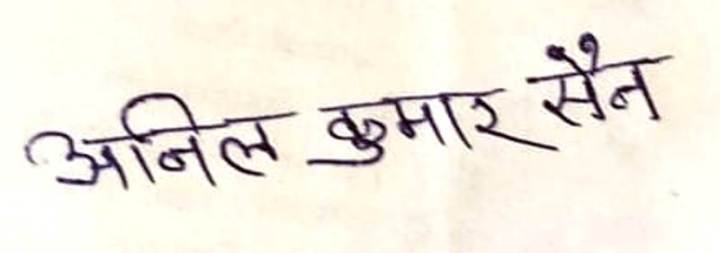 अनिल कुमार सैन